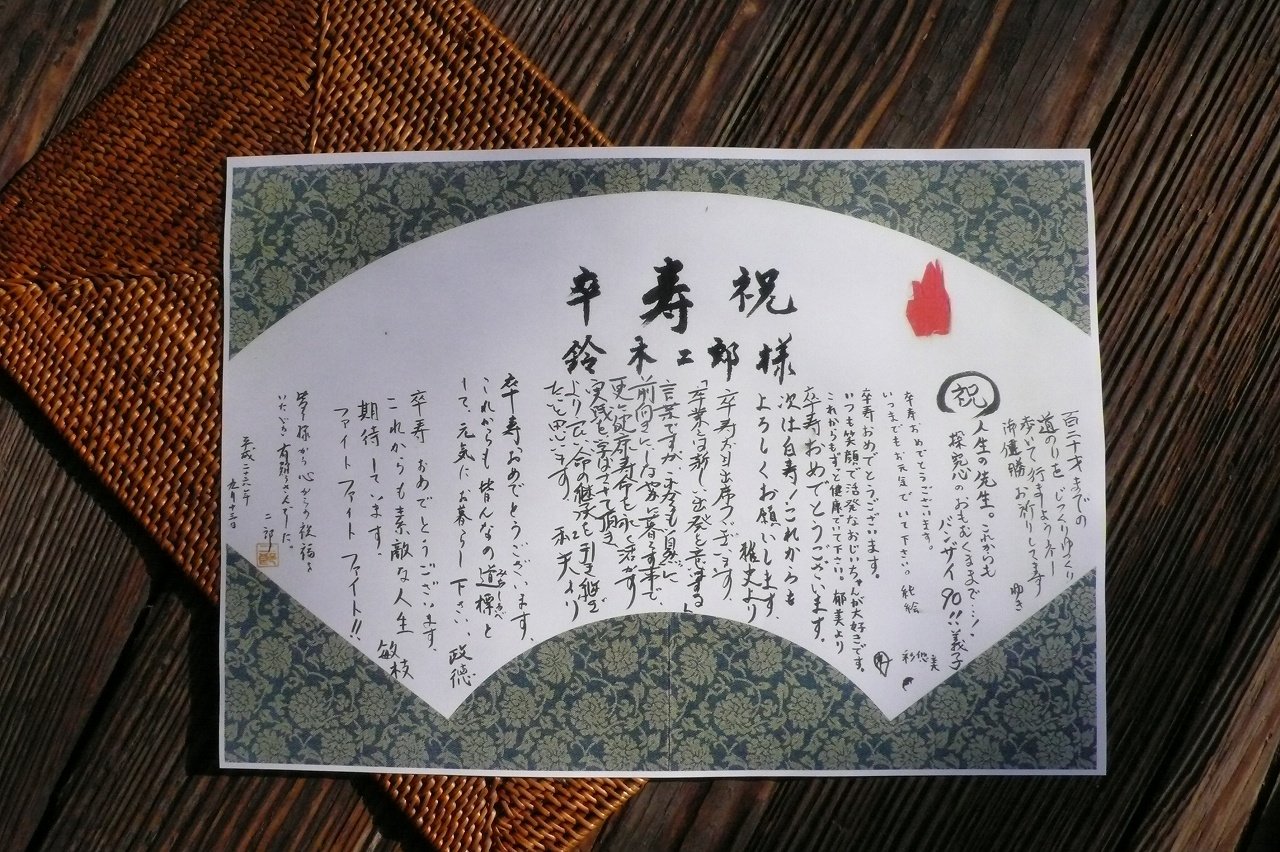 祝寿卒
鈴木二郎様
百二十才までの
道のりをじっくりゆっくり
歩いて行きますよう
御健勝お祈りしてます
ゆき
祝
人生の先生。これからも
探究心のおもむくままで…!!
バンザイ90!! 義子
卒寿おめでとうございます。
いつまでもお元気でいて下さい。
純絵
彩
悠美
卒寿おめでとうございます。
いつも笑顔で活発なおじいちゃんが大好きです。
これからもずっと健康でいて下さい。郁美より
卒寿おめでとうございます。
次は白寿!これからも
よろしくお願いします。
雅史より
卒寿お目出席うございます。
「卒業は新しい出発を意味する」
言葉ですが
前向きに
更に健康寿命を
実践を学ばさせて頂き
より良い命の継承を引き継ぎ
たいと思います。
卒寿おめでとうございます、
これからも皆んなの道標と
みちしるべ
して、元気にお暮らし下さい、政徳
卒寿おめでとうございます、
これからも素敵な人生
期待しています。敏枝
ファイトファイトファイト!!
皆様から心からの祝福を
いただき有難うさんでした。
平成二十六年
九月十三日
二郎